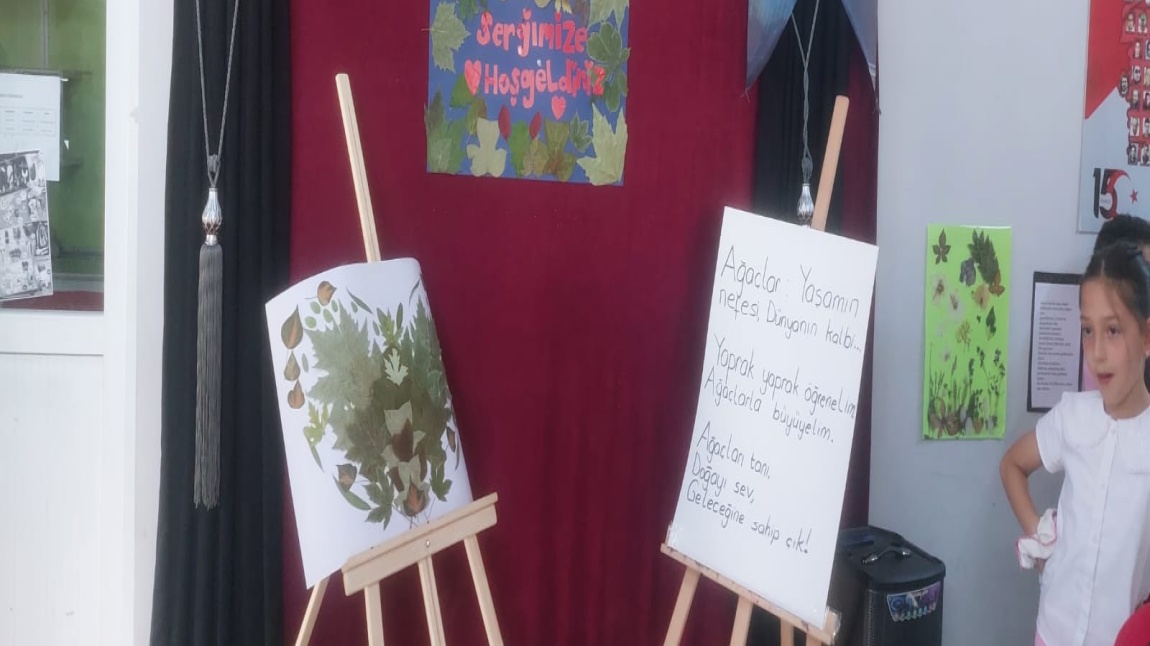 Sergimize
Hoşgeldiniz
Ağaclar: Yaşamın
nefesi, Dünyanın kalbi...
Yaprak yaprak öğrenelim,
Ağaclarla büyüyelim.
Ağacları tanı,
Doğayı sev,
Geleceğine sahip çık!
15